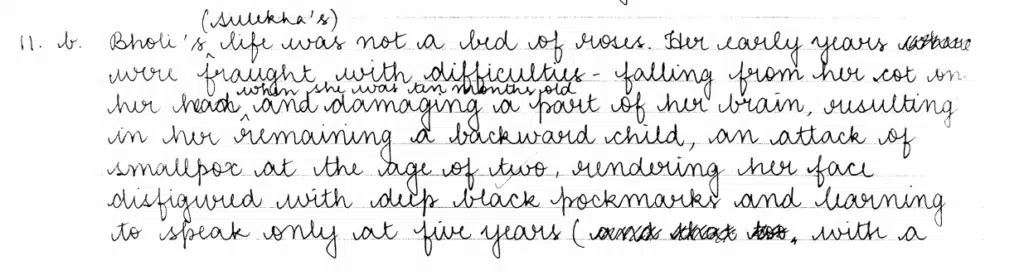 (Sulekha's)
11. b. Bholi's life was not a bed of roses. Her early years
were fraught with difficulties - falling from her cot on
when she was ten months old
her head, and damaging a part of her brain, resulting
in her remaining a backward child, an attack of
smallpox at the age of two, rendering her face
disfigured with deep black pockmarks and learning
to speak only at five years (and that too, with a